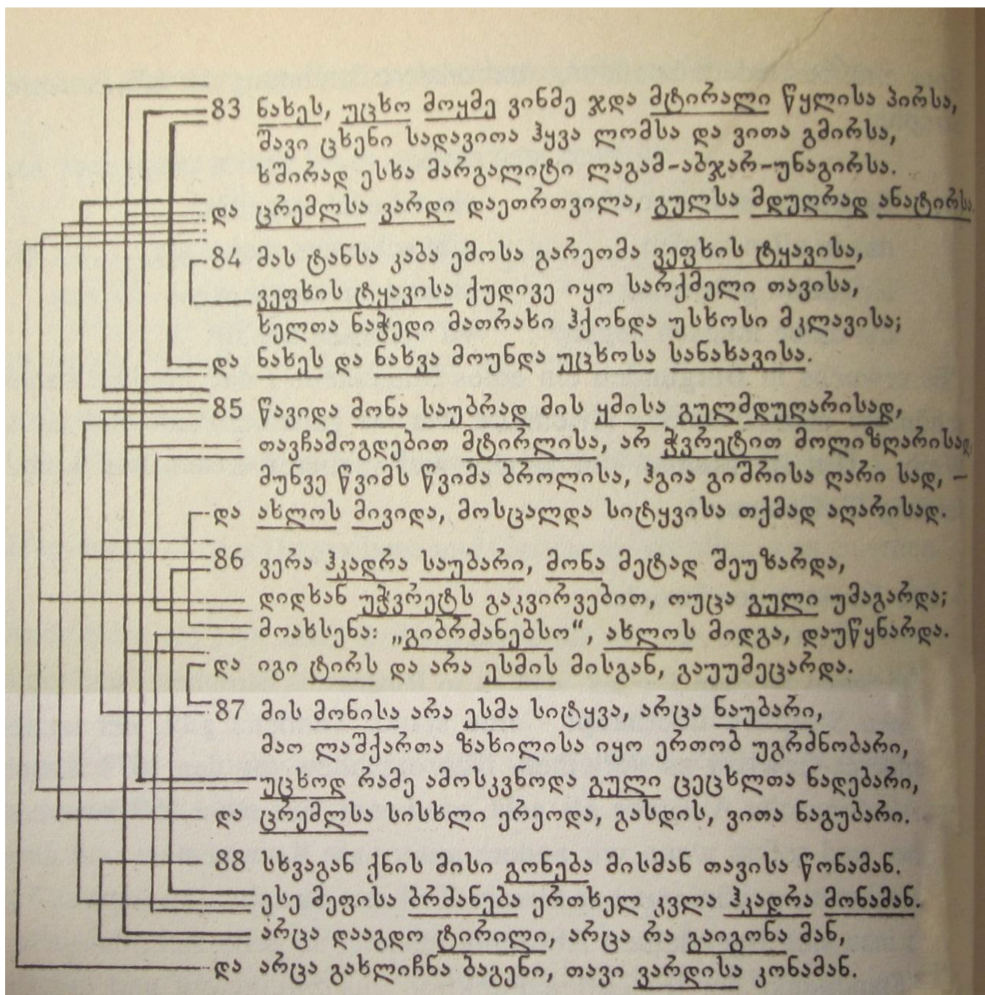 83 ნახეს, უცხო მოყმე ვინმე ჯდა მტირალი წყლისა პირსა,
შავი ცხენი სადავითა ჰყვა ლომსა და ვითა გმირსა,
ხშირად ესხა მარგალიტი ლაგამ-აბჯარ-უნაგირსა.
და ცრემლსა ვარდი დაეთრთვილა, გულსა მდუღრად ანატირსა.
84 მას ტანსა კაბა ემოსა გარეთმა ვეფხის ტყავისა,
ვეფხის ტყავისა ქუდივე იყო სარქმელი თავისა,
ხელთა ნაჭედი მათრახი ჰქონდა უსხოსი მკლავისა;
და ნახეს და ნახვა მოუნდა უცხოსა სანახავისა.
85 წავიდა მონა საუბრად მის ყმისა გულმდუღარისად,
თავჩამოგდებით მტირლისა, არ ჭვრეტით მოლიზღარისად,
მუნვე წვიმს წვიმა ბროლისა, ჰგია გიშრისა ღარი სად, –
და ახლოს მივიდა, მოსცალდა სიტყვისა თქმად აღარისად.
86 ვერა ჰკადრა საუბარი, მონა მეტად შეუზარდა,
დიდხან უჭვრეტს გაკვირვებით, თუცა გული უმაგარდა;
მოახსენა: „გიბრძანებსო“, ახლოს მიდგა, დაუწყნარდა.
და იგი ტირს და არა ესმის მისგან, გაუუმეცარდა.
87 მის მონისა არა ესმა სიტყვა, არცა ნაუბარი,
მათ ლაშქართა ზახილისა იყო ერთობ უგრძნობარი,
უცხოდ რამე ამოსკვნოდა გული ცეცხლთა ნადებარი,
და ცრემლსა სისხლი ერეოდა, გასდის, ვითა ნაგუბარი.
88 სხვაგან ქნის მისი გონება მისმან თავისა წონამან.
ესე მეფისა ბრძანება ერთხელ კვლა ჰკადრა მონამან.
არცა დააგდო ტირილი, არცა რა გაიგონა მან,
და არცა გახლიჩნა ბაგენი, თავი ვარდისა კონამან.